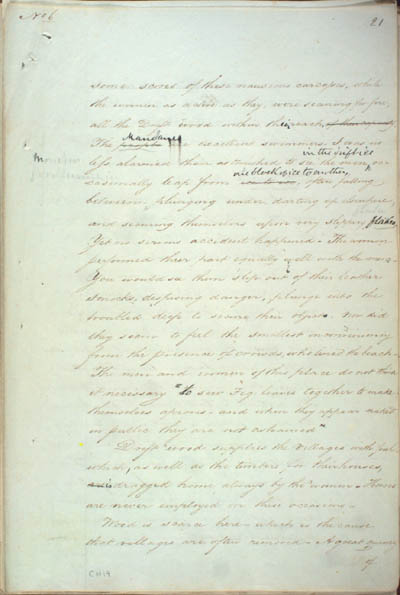 No 6
21
some scores of these nauseous carcases, while
the women as adroit as they, were securing for fire,
all the Drift wood within their reach,
The people Mandanes are excellent swimmers. I was no
in the surface
less alarmed than astonished to see the men, oc-
one block of ice to another,
casionally leap from often falling
between, plunging under, darting up elsewhere,
and securing themselves upon very slippery flakes.
Yet no serious accident happened. The women
performed their part equally well with the men.
You would see them slip out of their leather
smocks, despising danger, plunge into the
troubled deep to secure their object. Nor did
they seem to feel the smallest inconveniency
from the presence of crowds, who lined the beach.
The men and women of this place do not think
it necessary "to sew Fig leaves together to make
themselves aprons: and when they appear naked
in public they are not ashamed"
Drift wood supplies the villages with fuel
which, as well as the timbers for their houses,
dragged home always by the women. Horses
are never employed on these occasions.
Wood is scarce here which is the cause
that villages are often removed. A great quantity
of
CH19